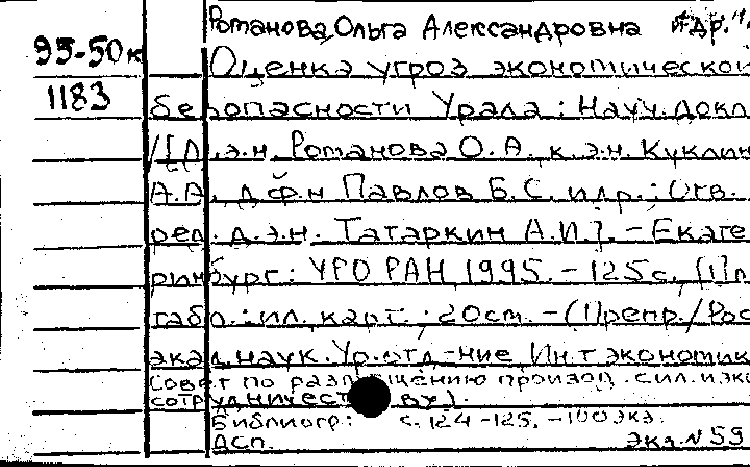 Романова, Ольга Александровна и др.
95-50к
Оценка угроз экономической
1183
безопасности Урала: Науч. докл
/[Д.э.н. Романова О.А., к.э.н. Куклин
А.А., д.ф.н Павлов Б.С. и др.; Отв.
ред. д.э.н. Татаркин А.И.]. - Екате
ринбург: УРО РАН, 1995. - 125с., [1]л
табл.: ил., карт.; 20см. - (Препр./Рос
акад. наук. Ур. отд-ние, Ин-т экономик
Совет по размещению произвол. сил. и эк
сотрудничеству).
Библиогр.: с. 124-125. - 100 экз.
ДСП. Экз. N 59